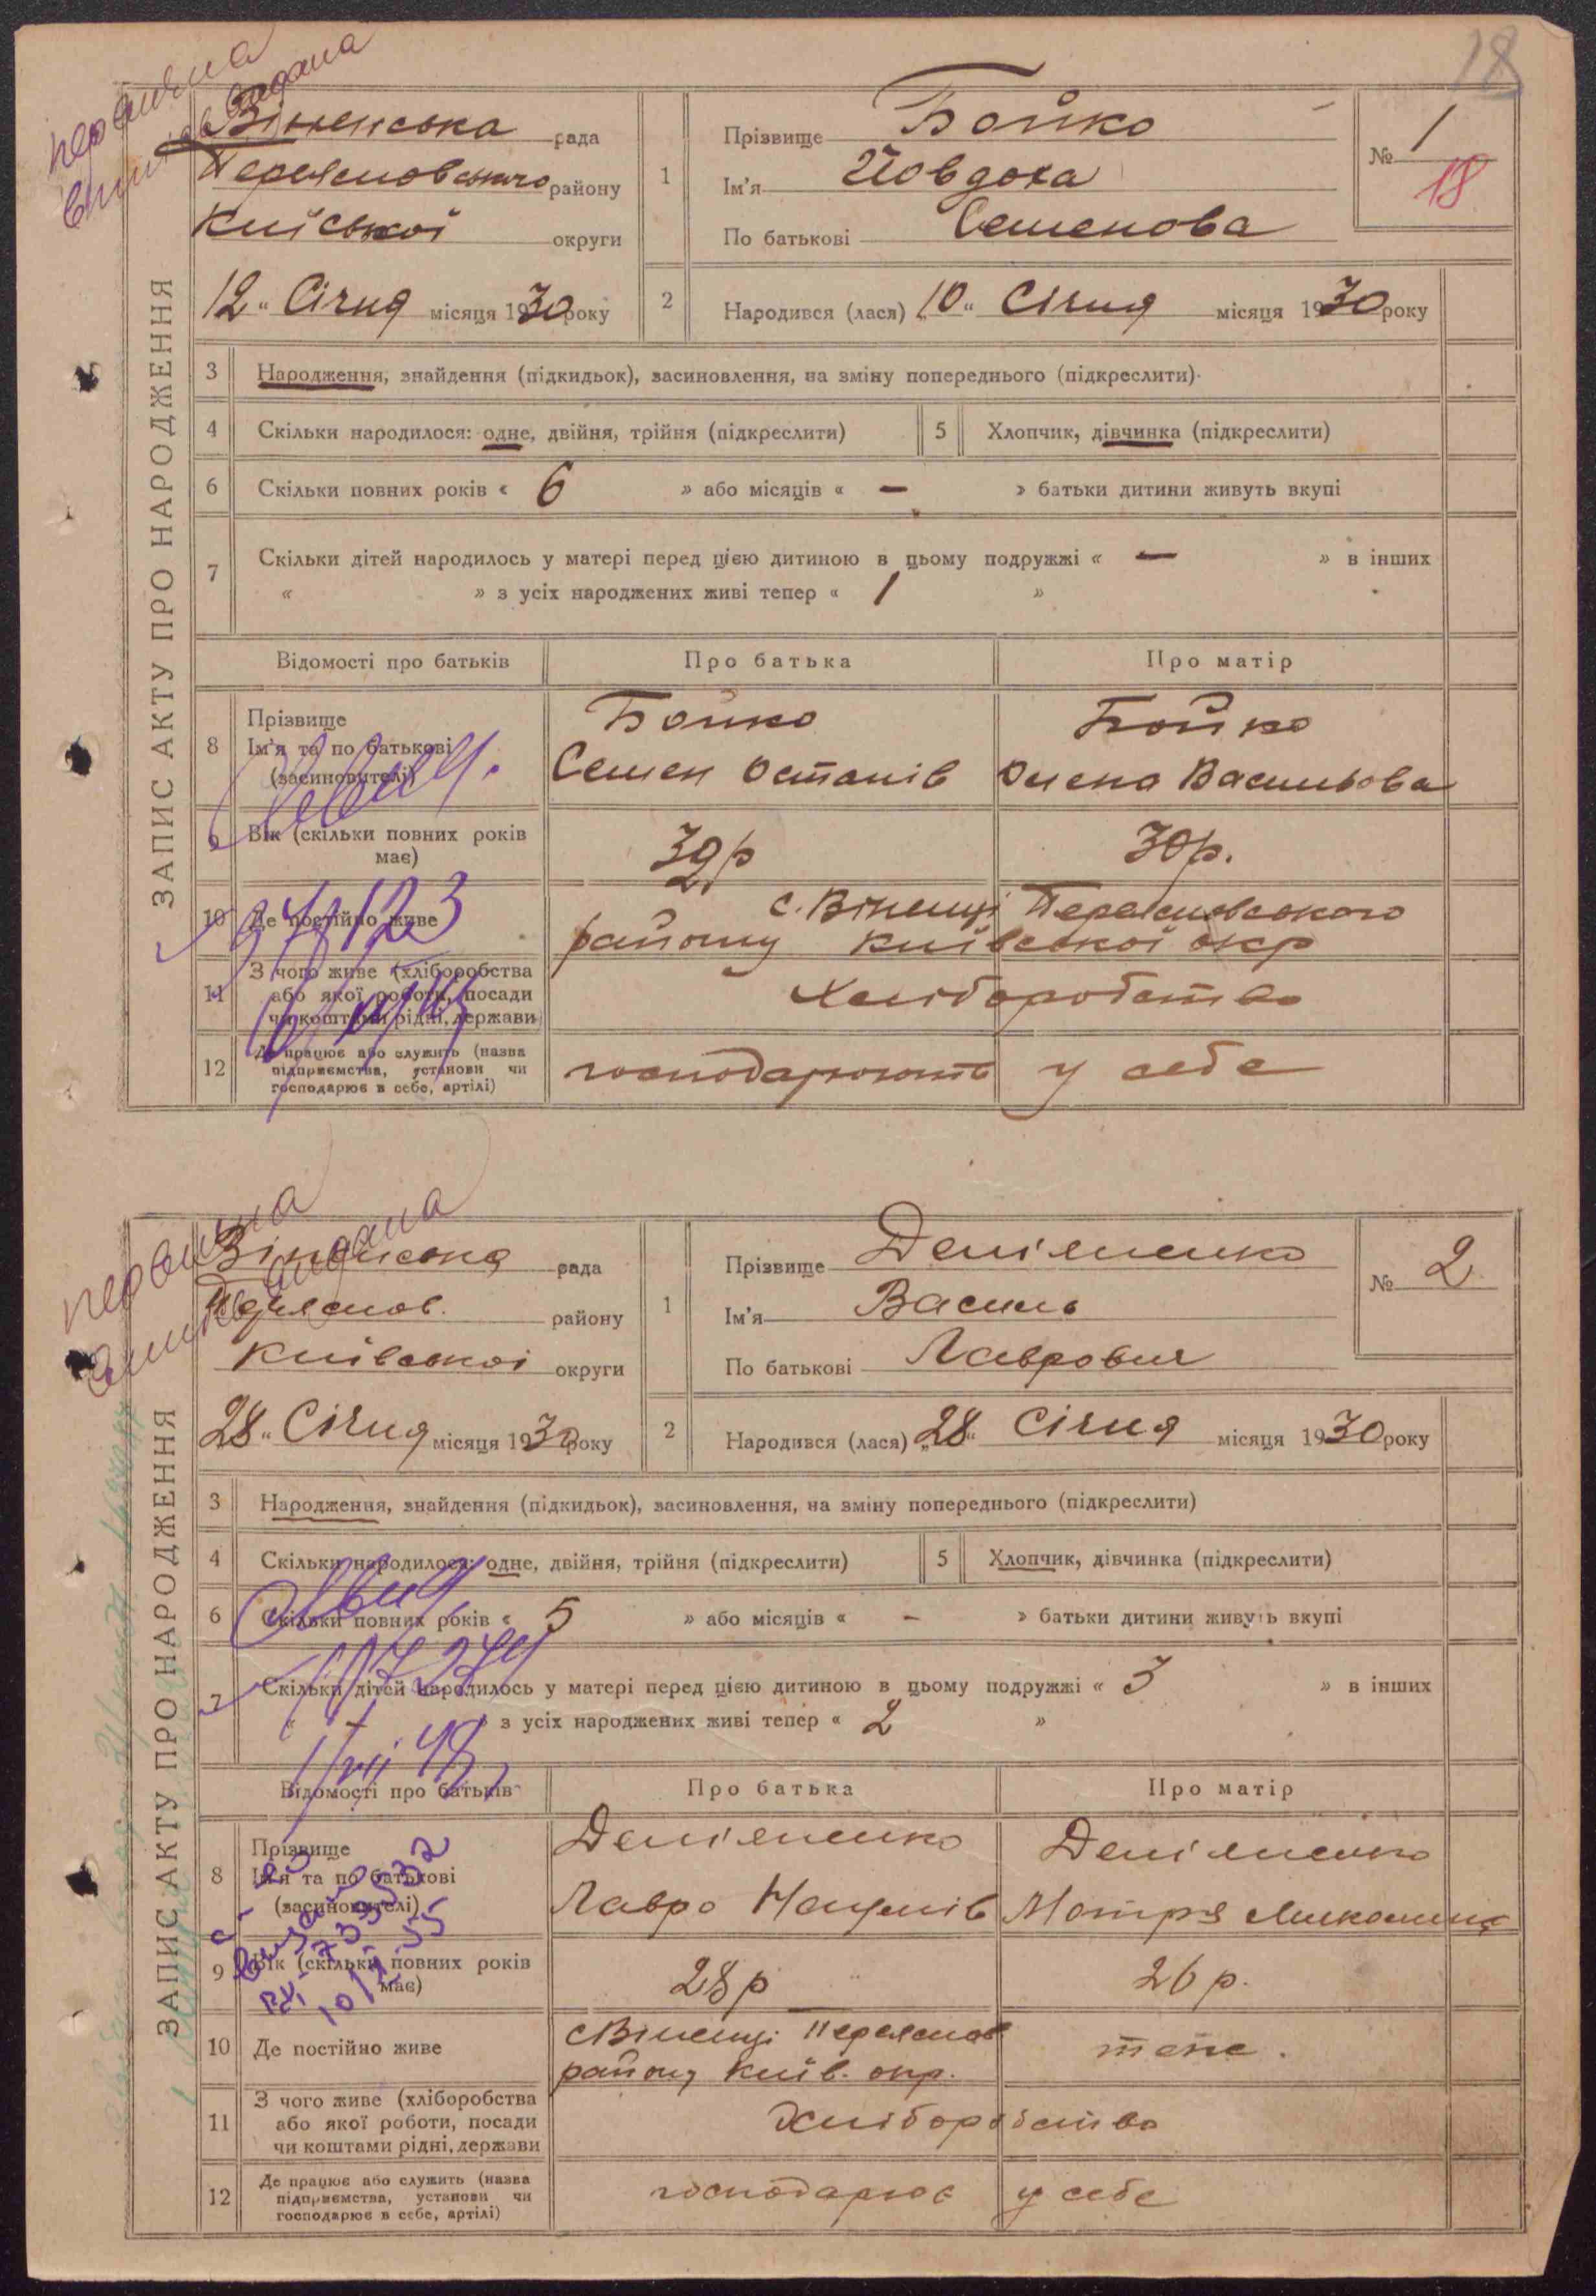 18
первична
видана
Віненська рада
Переяславського району
Київської округи
12 „ Січня місяця 1930 року
1
Прізвище Бойко
Ім'я Йовдоха
По батькові Семенова
№ 1
18
2
Народився (лася) „10“ Січня місяця 1930 року
ЗАПИС АКТУ ПРО НАРОДЖЕННЯ
3 Народження, знайдення (підкидьок), засиновлення, на зміну попереднього (підкреслити)
4 Скільки народилося: одне, двійня, трійня (підкреслити) 5 Хлопчик, дівчинка (підкреслити)
6 Скільки повних років « 6 » або місяців « – » батьки дитини живуть вкупі
7 Скільки дітей народилось у матері перед цією дитиною в цьому подружжі « — » в інших
« » з усіх народжених живі тепер « 1 »
Відомості про батьків Про батька Про матір
8 Прізвище
Ім'я та по батькові
(засиновителі)
Бойко
Семен Остапів
Бойко
Олена Васильова
9 Вік (скільки повних років
має)
30р.
10 Де постійно живе
с. Віненці Переяславського
району Київської окр
11 З чого живе (хліборобства
або якої роботи, посади
чи коштами рідні, держави
Хліборобства
12 Де працює або служить (назва
підприємства, установи чи
господарює в себе, артілі)
господарюють у себе
первична
видана
Віненська рада
Переяслов. району
Київської округи
28 „ Січня місяця 1930 року
1
Прізвище
Ім'я Василь
По батькові Лаврович
№ 2
2
Народився (лася) „28“ Січня місяця 1930 року
ЗАПИС АКТУ ПРО НАРОДЖЕННЯ
3 Народження, знайдення (підкидьок), засиновлення, на зміну попереднього (підкреслити)
4 Скільки народилося: одне, двійня, трійня (підкреслити) 5 Хлопчик, дівчинка (підкреслити)
6 Скільки повних років « 5 » або місяців « – » батьки дитини живуть вкупі
7 Скільки дітей народилось у матері перед цією дитиною в цьому подружжі « 3 » в інших
« » з усіх народжених живі тепер « 2 »
Відомості про батьків Про батька Про матір
8 Прізвище
Ім'я та по батькові
(засиновителі)
Лавро
Мотря
9 Вік (скільки повних років
має)
28р
26р.
10 Де постійно живе
с Віненці Переяслов
району Київ. окр.
теж.
11 З чого живе (хліборобства
або якої роботи, посади
чи коштами рідні, держави
Хліборобство
12 Де працює або служить (назва
підприємства, установи чи
господарює в себе, артілі)
господарює у себе